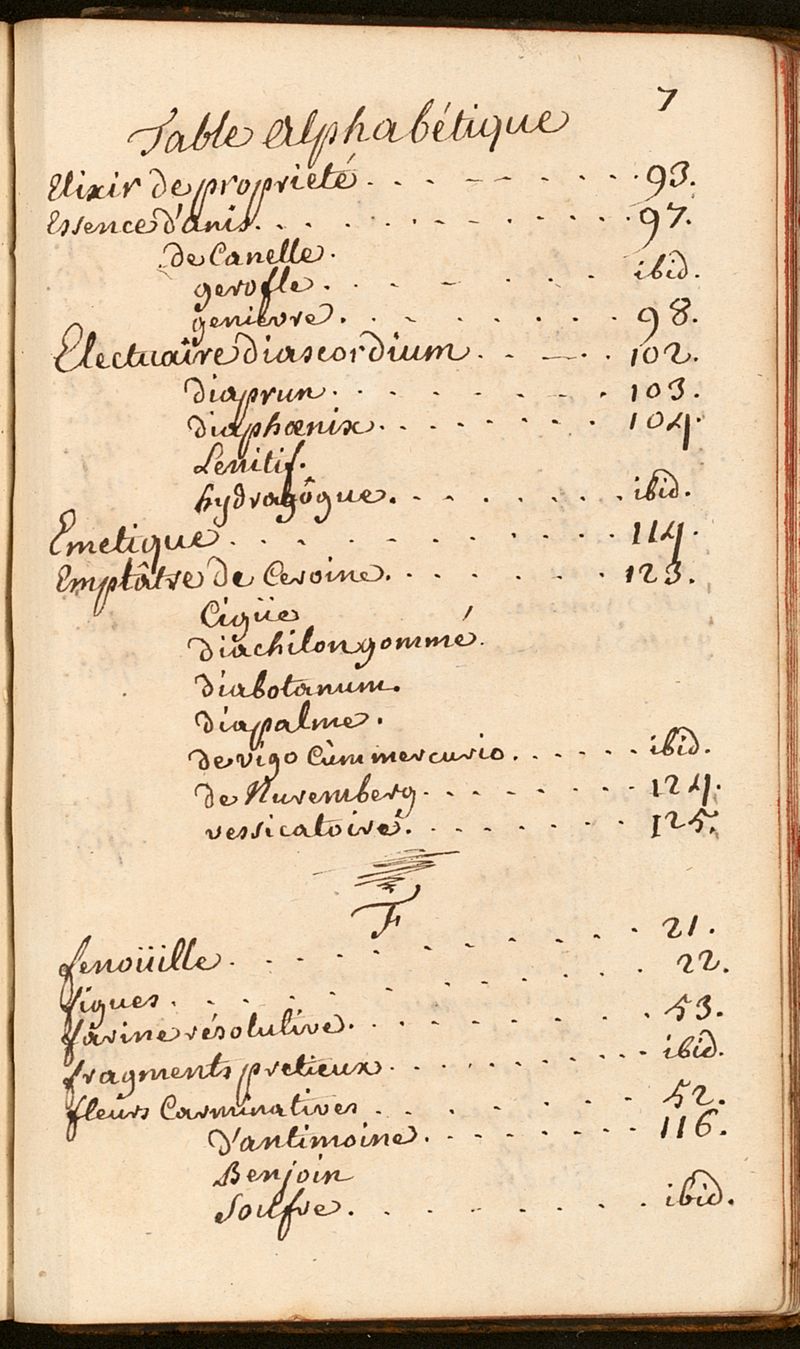 7
Table Alphabétique
Elixir de proprieté . . . - - - . . . . 93.
Essence d'anis. . . . . . . . . . . . 97.
de Canelle.
gerofle . . . - . - . . ibid.
genievre . . . . . . . . . 98.
Electuaïre diascordium . . - . . 102.
diaprun . . . . . . - . . 103.
diaphœnix . . . . . . . . 104.
Lenitif.
hydragôgue . . . . . . . ibid.
Emetique . . . . . . . . . . . 114.
Emplâtre de Ceroine . . . . . . . 123.
Cigüe
diachilon gommé.
diabotanum.
diapalme.
de vigo Cùm mercurio . . . . . . ibid.
de Nuremberg . . . . . . . . 124.
vessicatoiré. . . . . . . . 125.
F
fenoüille . . . . . . . . . . . 21.
figues . . . . . . . . . . . 22.
farine résolutive . . . . . . . . 53.
fragments pretieux . . . . . . . . ibid.
fleurs Carminatives . . . . . . . 52.
d'antimoine . . . . . . . 116.
Benjoin
Soufre . . . . . . . . ibid.